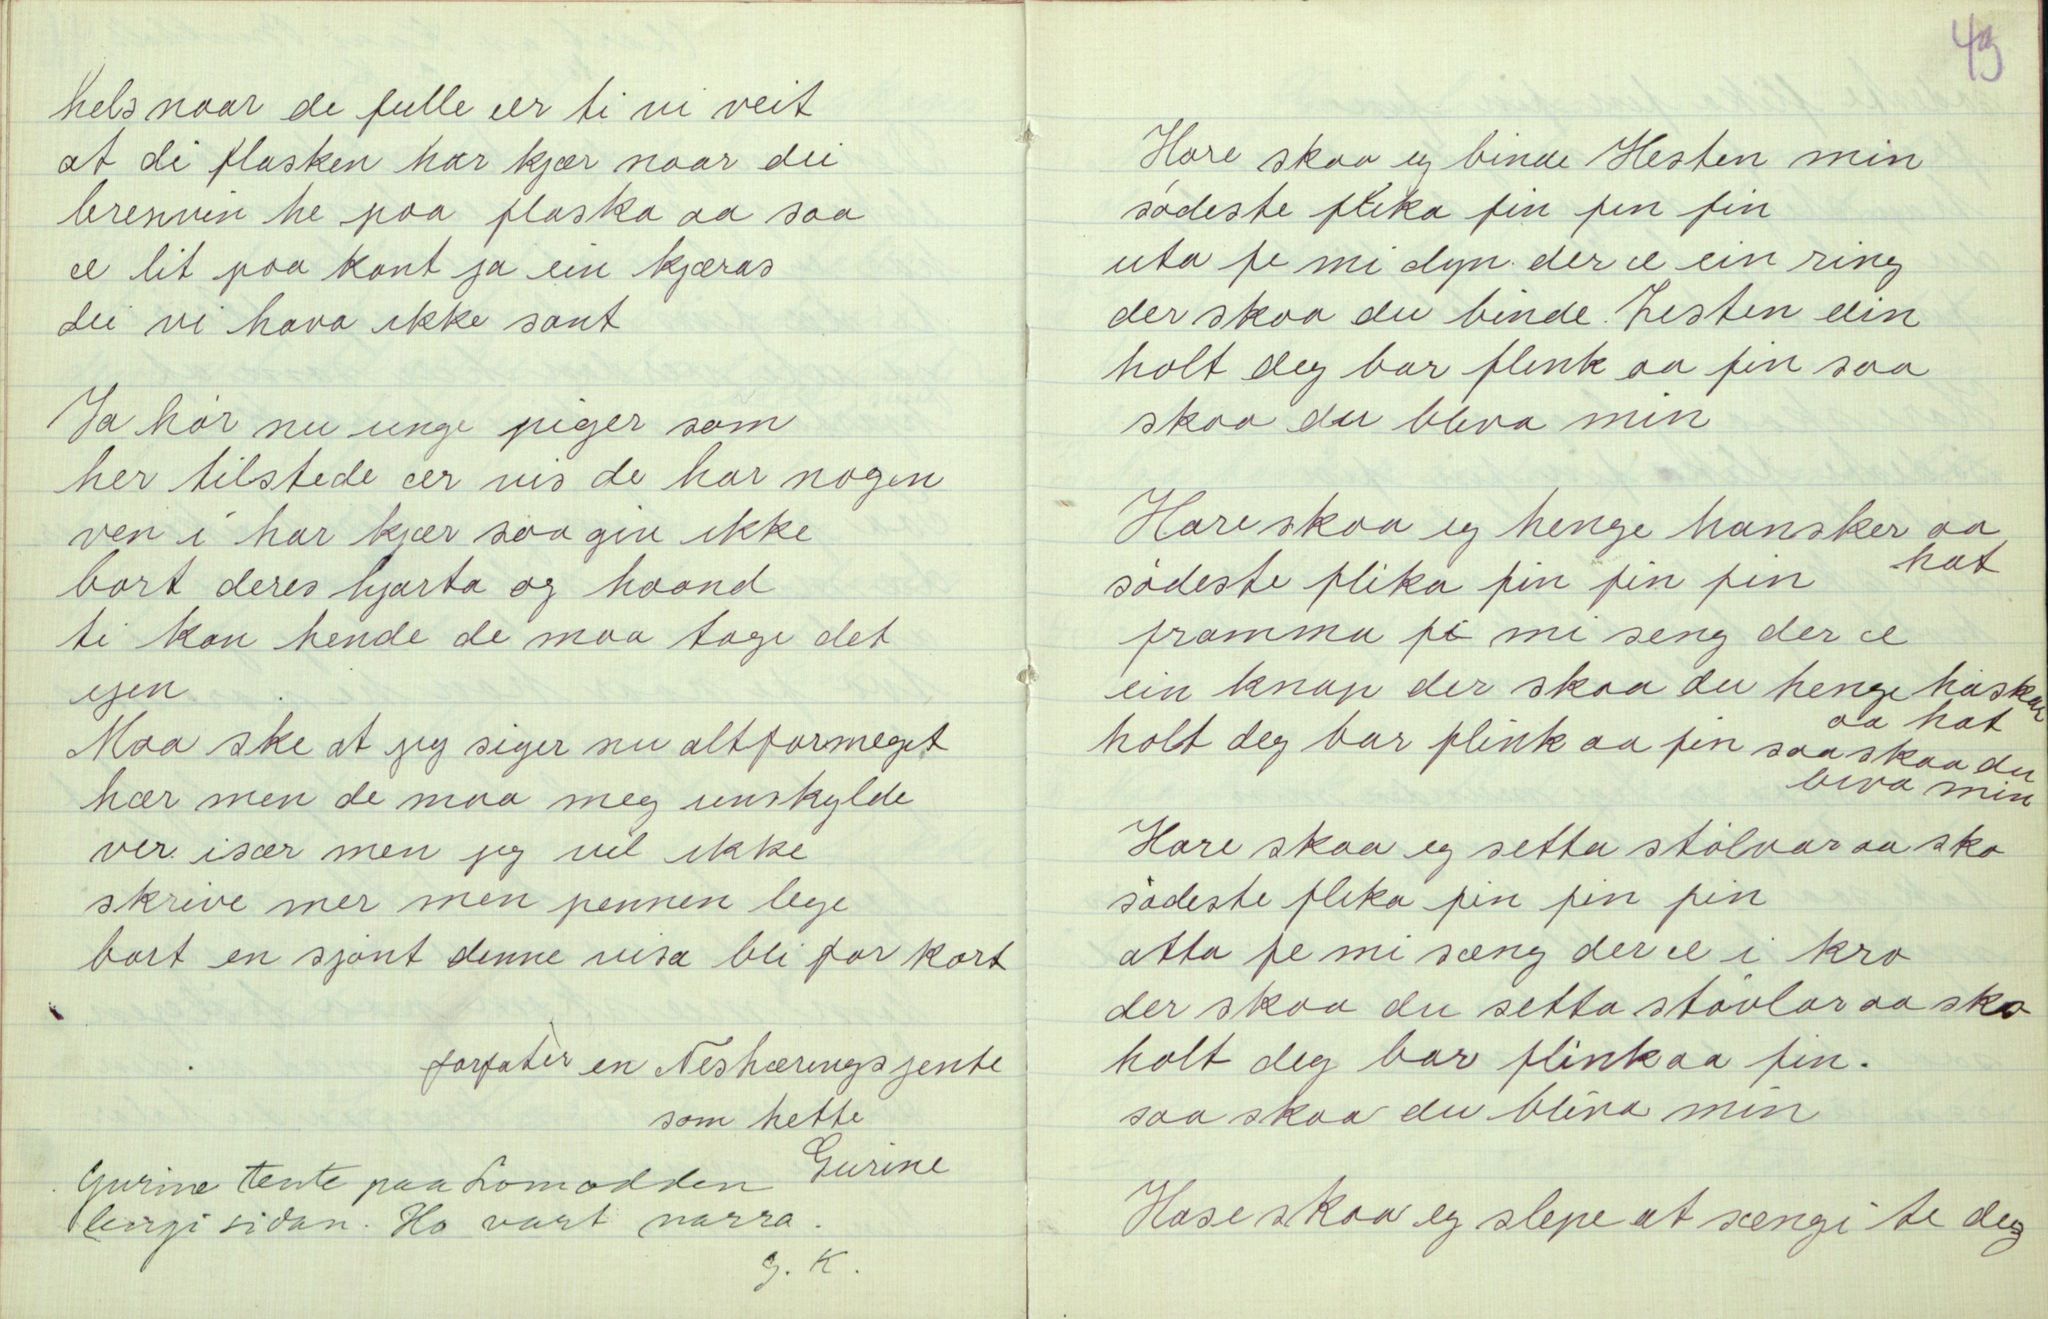 hels naar de fulle er ti vi veit
at di flasken har kjær naar dei
brenvin he paa flaska aa saa
æ lit paa kant ja ein kjæras
dei vi hava ikke sant
Ja hör nu unge piger som
her tilstede er vis de har nogen
ven i har kjær saa giv ikke
bort deres hjarta og haand
ti kan hende de maa tage det
igen
Maa ske at jeg siger nu altformeget
hær men de maa meg unskylde
ver især men jeg vil ikke
skrive mer men pennen lege
bort en sjönt denne visa bli for kort
forfater en Neshæringsjente
som hette
Gurine
Gurine tente paa Lomodden
lengi sidan. Ho vart narra.
G. K.
43
Hore skaa eg binde Hesten min
södeste flika fin fin fin
uta fe mi dyn der æ ein ring
der skaa du binde Hesten din
holt deg bar flink aa fin saa
skaa du bliva min
Hare skaa eg henge hansker aa
hat
södeste flika fin fin fin
framma fe mi seng der æ
ein knap der skaa du henge haskar
aa hat
holt deg bar flink aa fin saa skaa du
biva min
Hare skaa eg setta stölvar aa sko
södeste flika fin fin fin
atta fe mi sæng der æ i kro
der skaa du setta stövlar aa sko
holt deg bar flink aa fin.
saa skaa du bliva min
Hose skaa eg slepe at sængi te deg